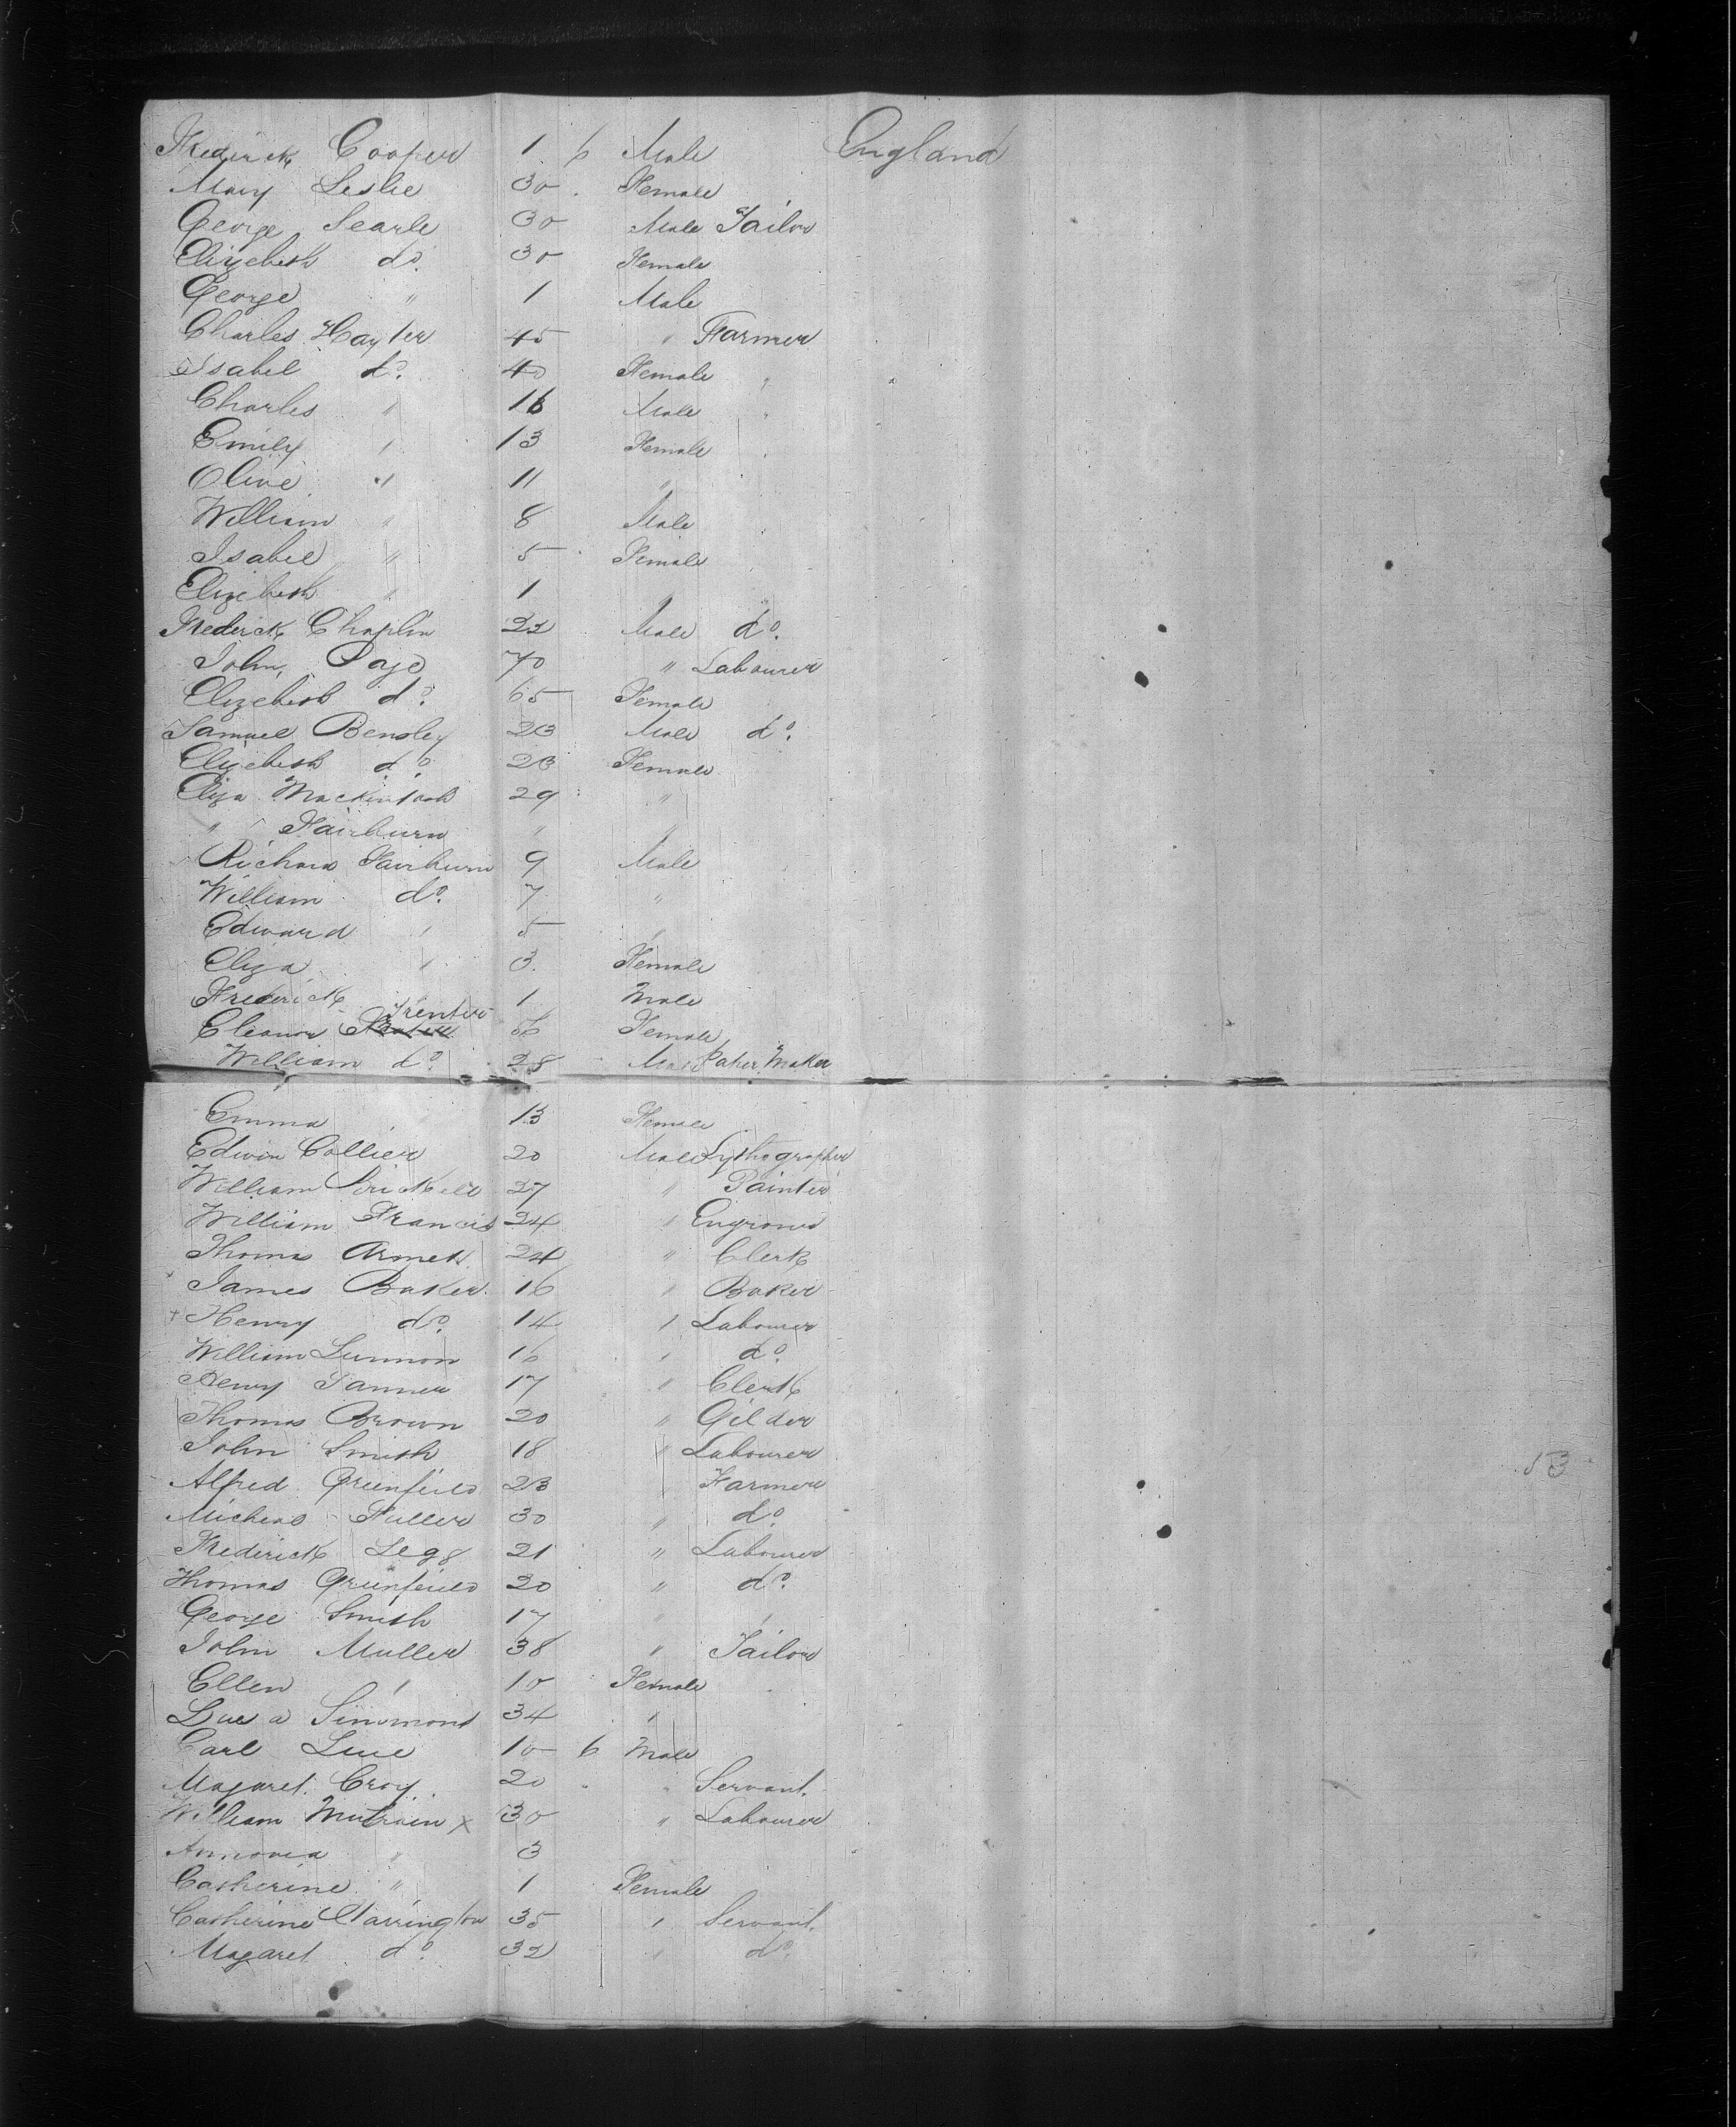 Frederick Cooper 1 6 Male England
Mary Leslie 30 Female
George Searle 30 Male Tailor
Elizebeth do. 30 Female
George " 1 Male
Charles Hayter 45 " Farmer
Isabel do. 40 Female
Charles " 16 Male
Emily " 13 Female
Olive " 11 "
William " 8 Male
Isabel " 5 Female
Elizebeth " 1 "
Frederick Chaplin 22 Male do.
John Page 70 " Labourer
Elizebeth do. 65 Female
Samuel Bensley 23 Male do.
Elizebeth do. 23 Female
Eliza Mackintosh 29 "
" Fairburn " "
Richard Fairburn 9 Male
William do. 7 "
Edward " 5 "
Eliza " 3 Female
Frederick 1 Male
Eleanor Trenter Female
William do. 28 Male Paper Maker
Emma 13 Female
Edwin Collier 20 Male Lythographer
William 27 " Painter
William Francis 24 " Engraver
Thomas 24 " Clerk
James Baker 16 " Baker
+ Henry do. 14 " Labourer
William Lunnon 16 " do.
Henry Tanner 17 " Clerk
Thomas Brown 20 " Gilder
John Smith 18 " Labourer
Alfred Greenfield 23 Farmer
Micheal Fuller 30 " do.
Frederick Legg 21 " Labourer
Thomas Greenfield 20 " do.
George Smith 17 " "
John Muller 38 " Tailor
Ellen " 10 Female
Simmons 34 "
Carl 10 6 Male
Magaret Croy 20 " Servant.
William x 30 " Labourer
" 3
Catherine " 1 Female
Catherine Warrington 35 " Servant.
Magaret do. 32 " do.